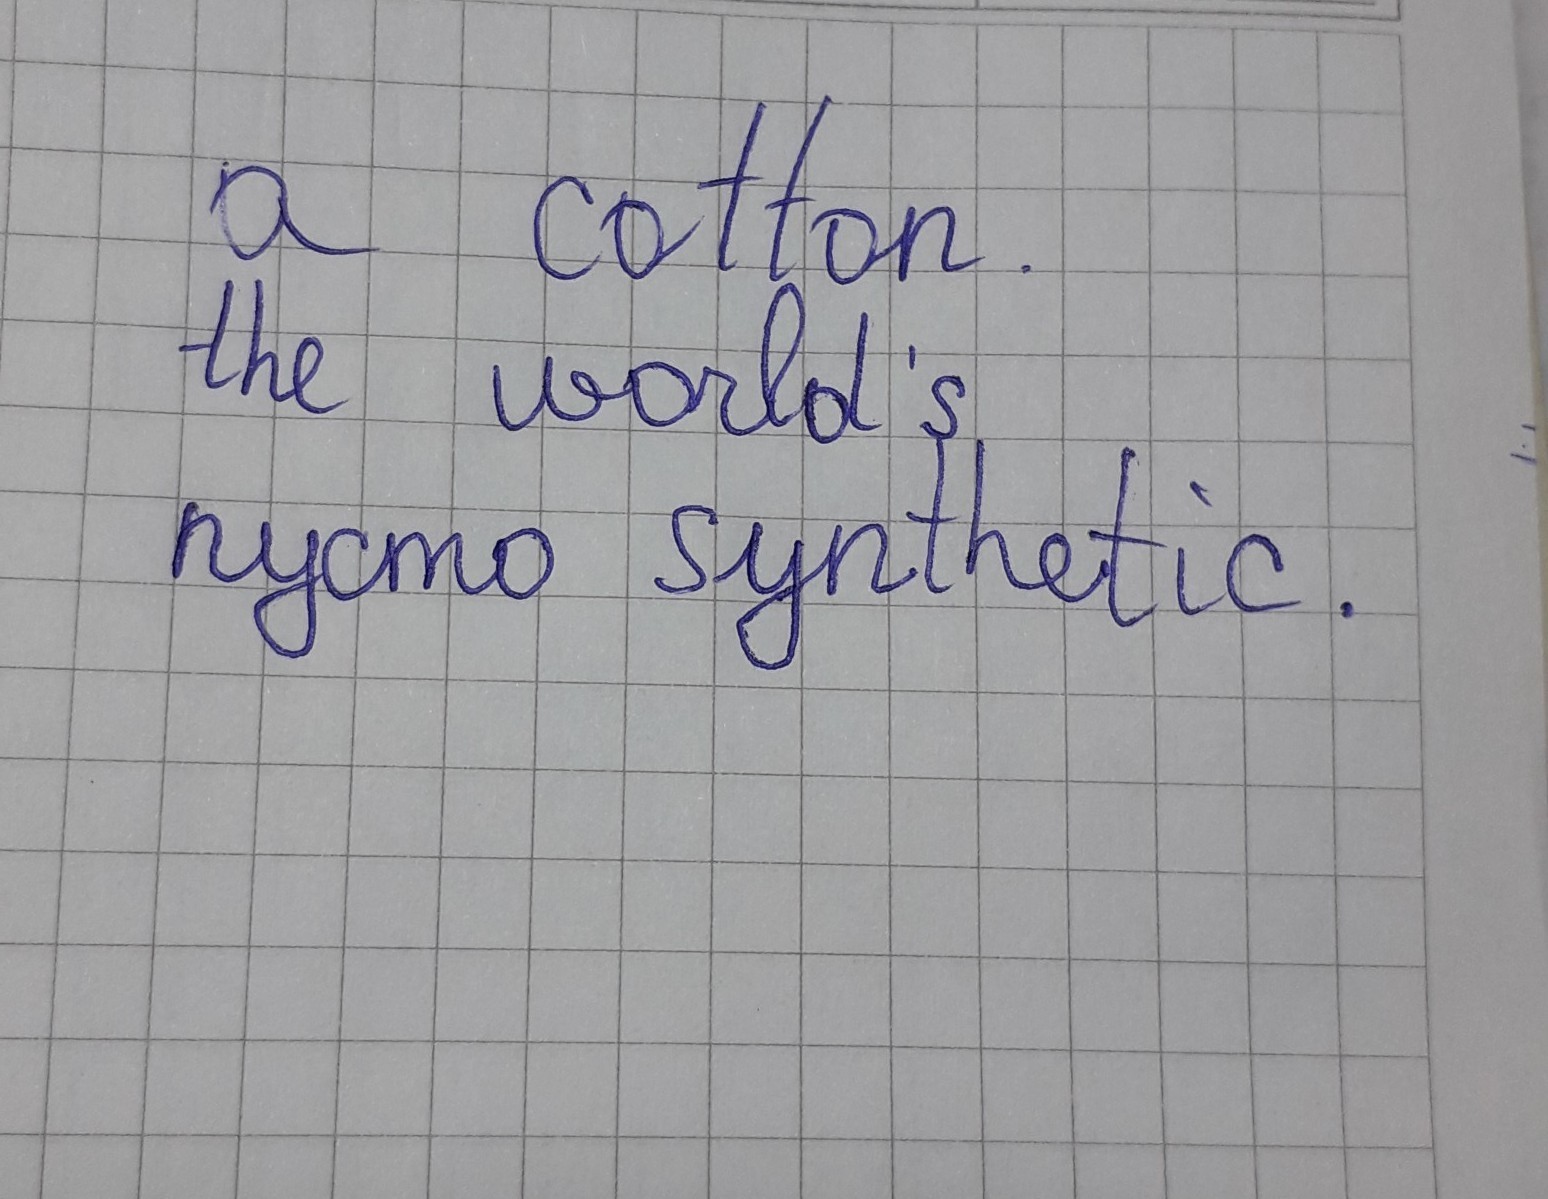 a cotton.
the world's
пусто synthetic.